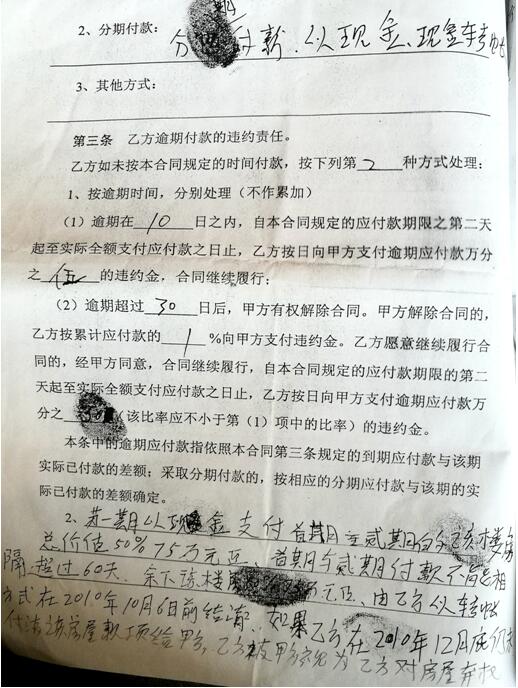 2、分期付款:
分期付款.以现金、现金转
3、其他方式:
第三条 乙方逾期付款的违约责任。
乙方如未按本合同规定的时间付款，按下列第 2 种方式处理:
1、按逾期时间，分别处理（不作累加）
（1）逾期在 10 日之内，自本合同规定的应付款期限之第二天
起至实际全额支付应付款之日止，乙方按日向甲方支付逾期应付款万分
之 伍 的违约金，合同继续履行;
（2）逾期超过 30 日后，甲方有权解除合同。甲方解除合同的，
乙方按累计应付款的 1 %向甲方支付违约金。乙方愿意继续履行合
同的，经甲方同意，合同继续履行，自本合同规定的应付款期限的第二
天起至实际全额支付应付款之日止，乙方按日向甲方支付逾期应付款万
分之 （该比率应不小于第（1）项中的比率）的违约金。
本条中的逾期应付款指依照本合同第三条规定的到期应付款与该期
实际已付款的差额; 采取分期付款的，按相应的分期应付款与该期的实
际已付款的差额确定。
2、若一期以现金支付首期至贰期 楼房
总价值50%75万元正、首期与贰期付款不
隔超过60天. 余下该楼 万元正. 由乙方以转帐
方式在2010年10月6日前给清. 如果乙方在2010年12月底仍未
付清该房屋款项给甲方, 乙方被甲方视为乙方对房屋弃权